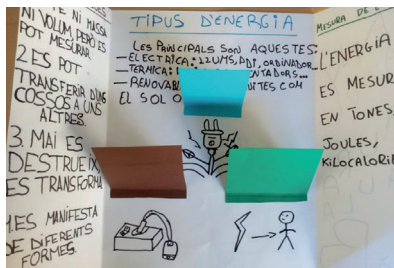 NI VOLUM, PERÒ ES
POT MESURAR
2 ES POT
TRANSFERIR D'UNS
COSSOS A UNS
ALTRES.
3. MAI ES
DESTRUEIX
ES TRANSFORMA
4. ES MANIFESTA
DE DIFERENTS
FORMES.
TIPUS D'ENERGIA
LES PRINCIPALS SON AQUESTES:
—ELECTRICA: LLUMS, PDI, ORDINADOR...
—TERMICA:
—RENOVABL
COM
EL SOL O
MESURA DE
L'ENERGIA
ES MESUR
EN IONES,
JOULES,
KILOCALORIE